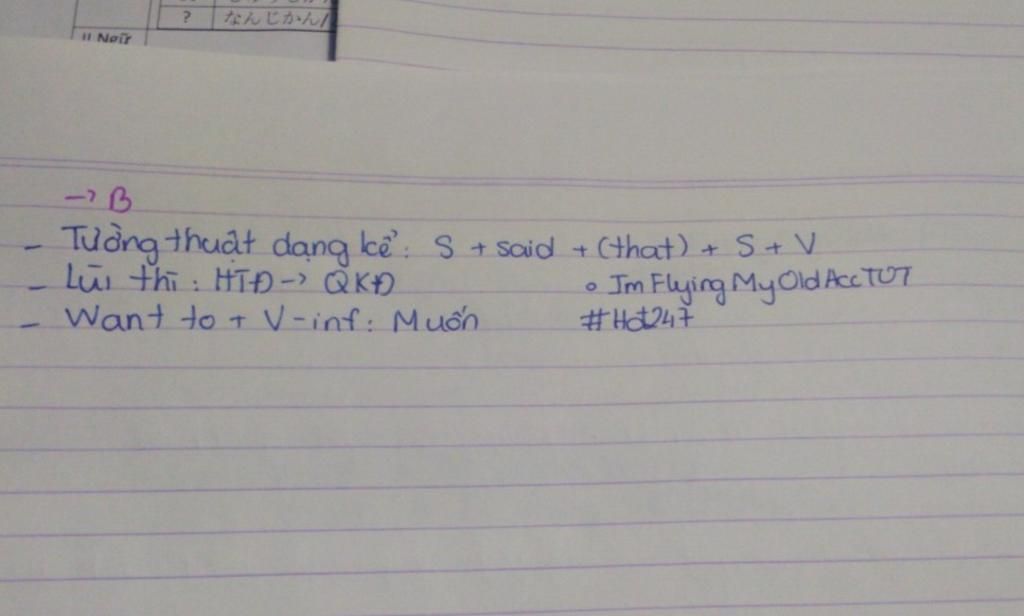 ?
なんじかん/
→ B
- Tường thuật dạng kể: S + said + (that) + S + V
- Lùi thì: HTĐ → QKĐ
∘ ImFlyingMyOldAccTUT
- Want to + V-inf: Muốn
#Hot247